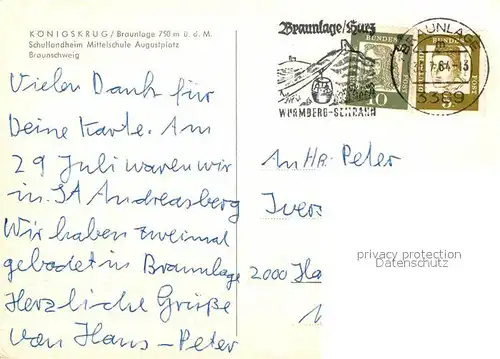 KÖNIGSKRUG / Braunlage 750 m ü. d. M.
Schullandheim Mittelschule Augustplatz
Braunschweig
Braunlage/Harz
WURMBERG-SEILBAHN
BRAUNLAGE
64-13
3389
10
DEUTSCHE BUNDESPOST
Vielen Dank für
Deine Karte. Am
29 Juli waren wir
in. St Andreasberg
Wir haben zweimal
gebadet in Braunlage
Herzliche Grüße
von Hans-Peter
An HR. Peter
Iver
2000 Ha
privacy protection
Datenschutz